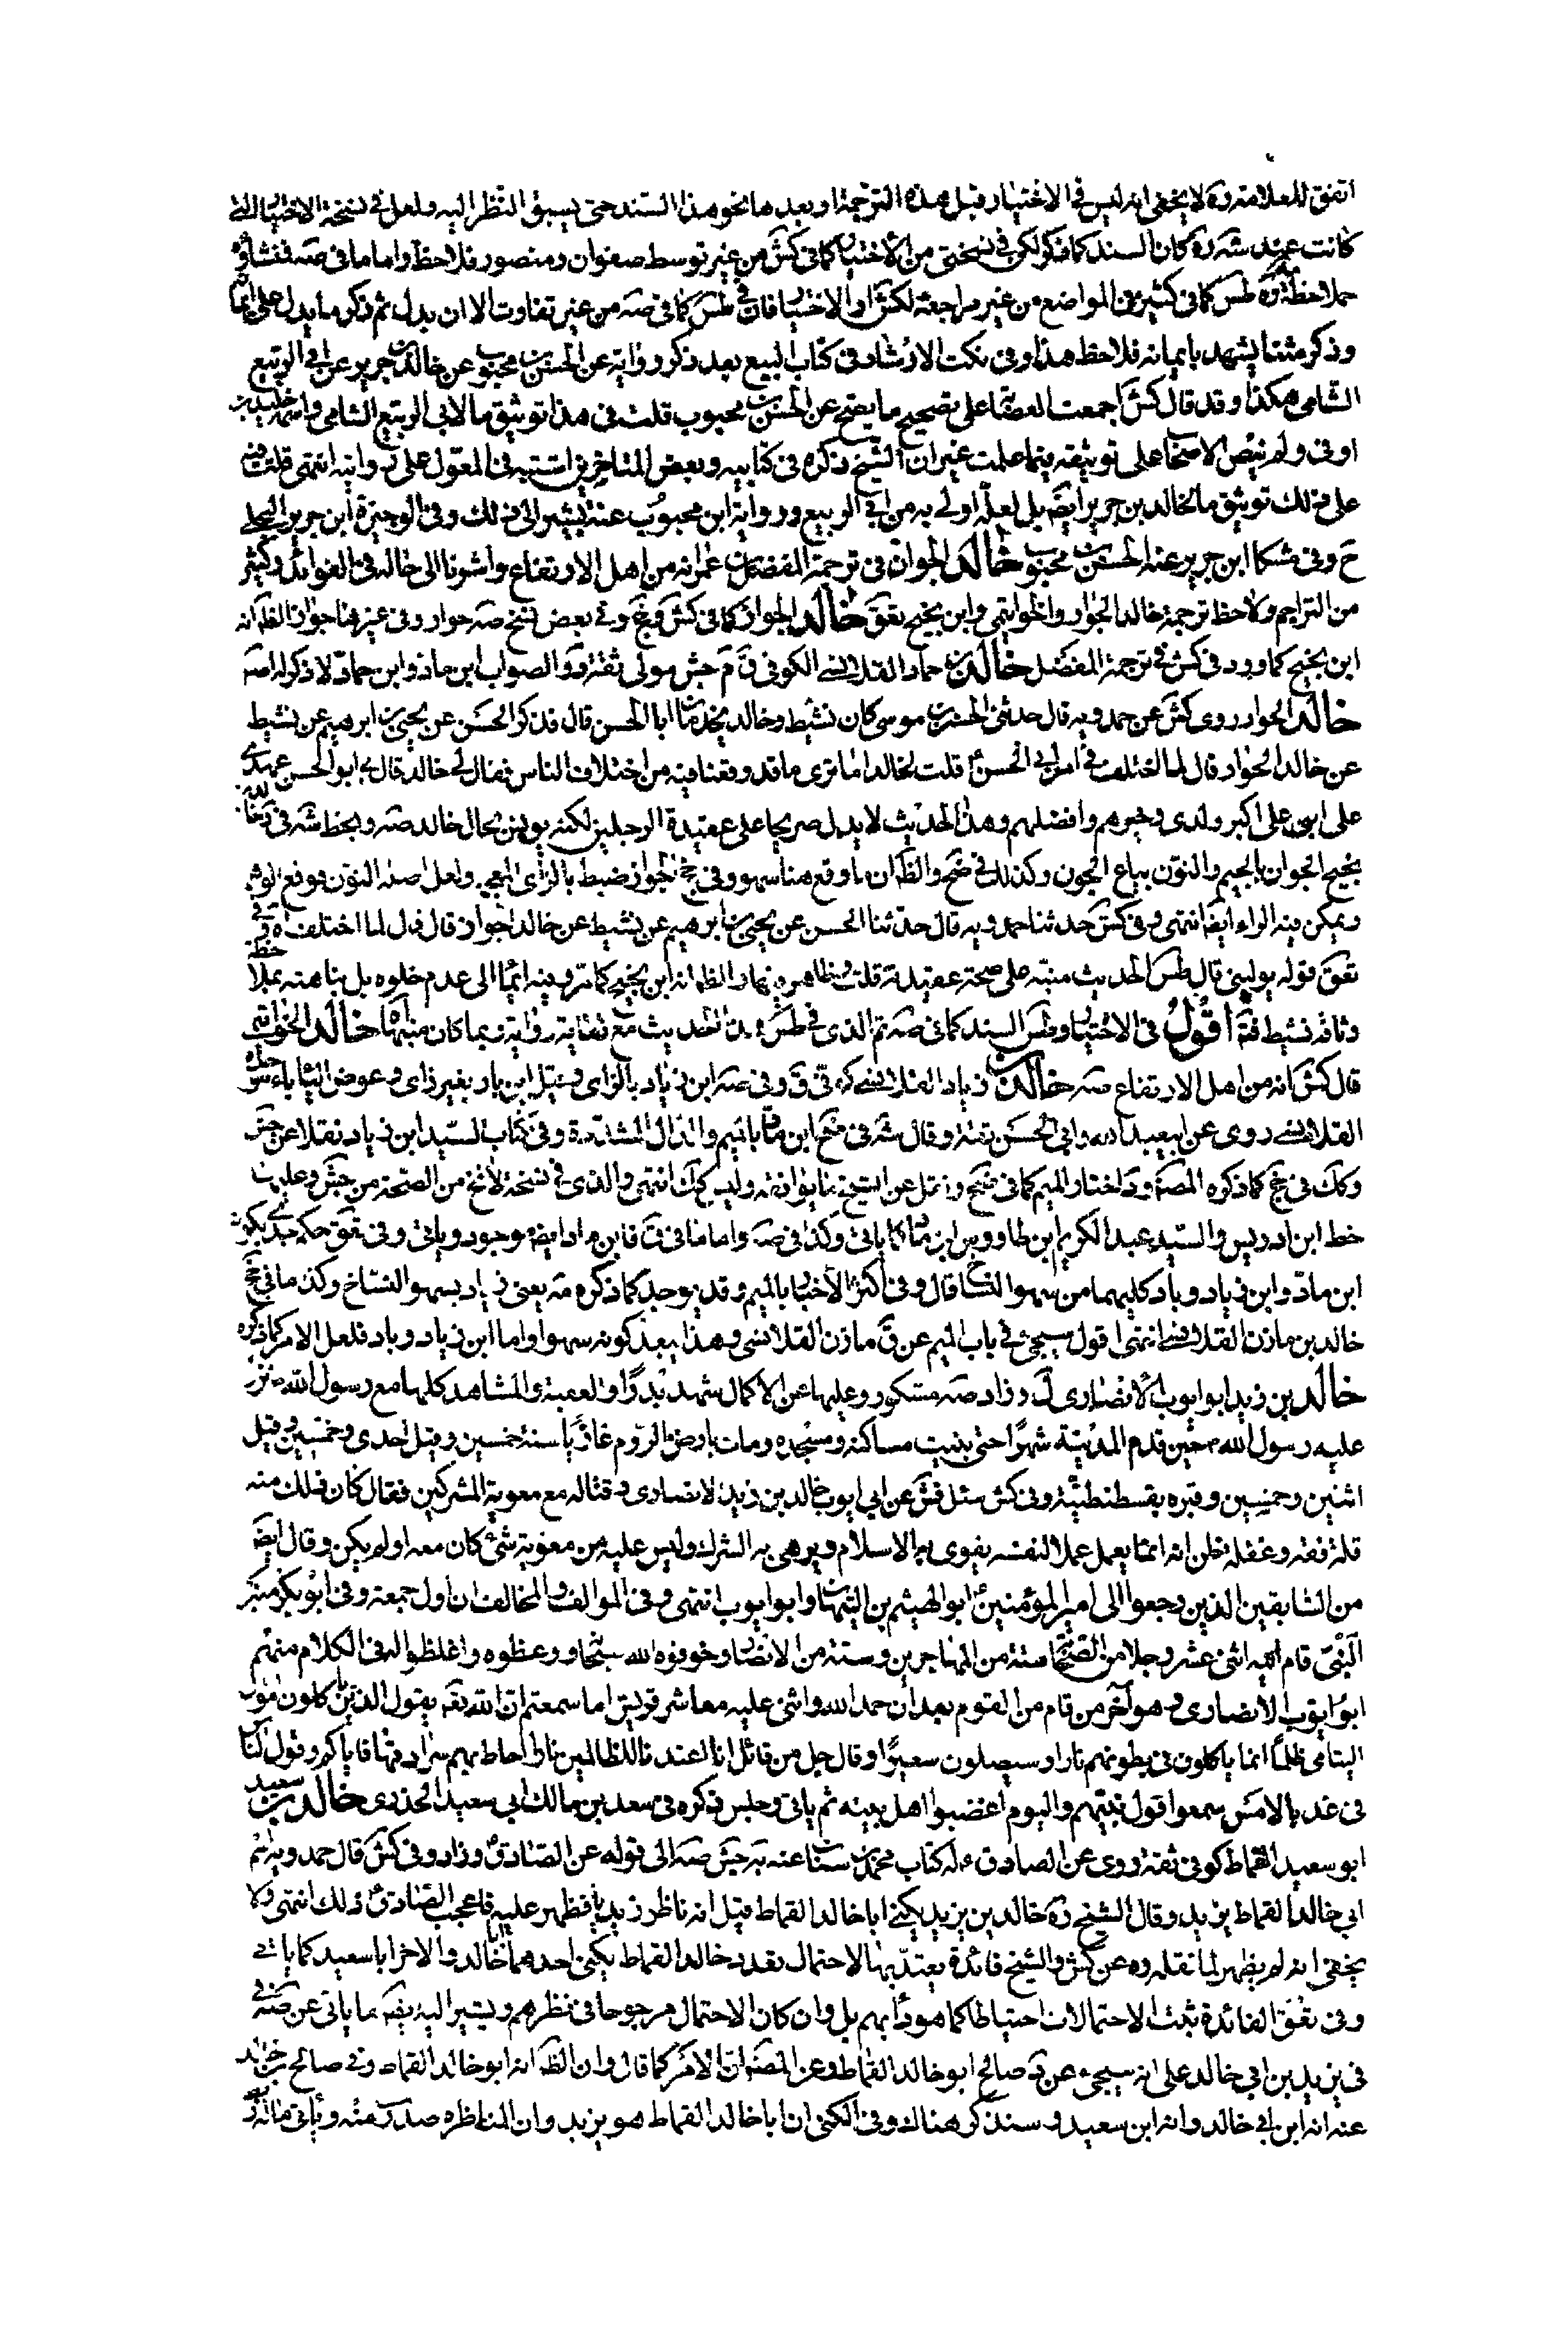 اتفق للعلامة ره لا يخفى انه ليس فى الاختيار قبل هذه الترجمة او بعدها نحو هذا السند حتى يسبق النظر اليه ولعل فى نسخة الاختيار التى
كانت عند شه ره كان السند كما ذكر لكن فى نسختى من الاختيار كما فى كش من غير توسط صفوان ومنصور فلاحظ واما ما فى صه فنشاؤه
ملاحظته ره طس كما فى كثير من المواضع من غير مراجعة لكش او الاختيار فان فى طس كما فى صه من غير تفاوت الا ان بدل ثم ذكر ما يدل على ايمانه
وذكر متنا يشهد بايمانه فلاحظ هذا وفى نكت الارشاد فى كتاب البيع بعد ذكر رواية عن الحسن بن محبوب عن خالد بن جرير عن ابى الربيع
الشامى هكذا وقد قال كش اجمعت العصابة على تصحيح ما يصح عن الحسن بن محبوب قلت فى هذا توثيق ما لابى الربيع الشامى واسمه خليد بن
اوفى ولم ينص الاصحاب على توثيقه فيما علمت غير ان الشيخ ذكره فى كتابيه وبعض المتاخرين اشتبه فى المعول على روايته انتهى قلت فيه
على ذلك توثيق ما لخالد بن جرير ايضا بل لعله اولى به من ابى الربيع ورواية ابن محبوب عنه تشير الى ذلك وفى الوجيزة ابن جرير البجلى
ح وفى مشكا ابن جرير عنه الحسن بن محبوب خالد الجوان فى ترجمة المفضل بن عمر انه من اهل الارتفاع واشرنا الى حاله فى الفوائد وكثير
من التراجم ولاحظ ترجمة خالد الجواز والخواتيمى وابن نجيح تعق خالد الجواز كما فى كش وجخ وفى بعض نسخ صه حوار وفى غيرها جواز الظ انه
ابن نجيح كما ورد فى كش فى ترجمة المفضل خالد بن حماد القلانسى الكوفى ق م جش مولى ثقة ود والصواب ابن ماد وابن حماد لا ذكر له اصه
خالد الحوار روى كش عن حمدويه قال حدثنى الحسن بن موسى كان نشيط وخالد يخدمان ابا الحسن قال فذكر الحسن عن يحيى بن ابرهيم عن نشيط
عن خالد الحوار قال لما اختلف فى امر ابى الحسن قلت لخالد اما ترى ما قد وقعنا فيه من اختلاف الناس فقال لى خالد قال لى ابو الحسن عهدى
على ابنى على اكبر ولدى وخيرهم وافضلهم وهذا الحديث لا يدل صريحا على عقيدة الرجلين لكنه يونس بحال خالد صه وبخط شه فى
نجيح الجوان بالجيم والنون بياع الجون وكذلك فى ضح والظ ان ما وقع هنا سهو وفى جخ الجواز ضبط بالزاى المعجمة ولعل اصله النون فوقع الوهم
ويمكن فيه الراء ايضا انتهى وفى كش حدثنا حمدويه قال حدثنا الحسن عن يحيى بن ابرهيم عن نشيط عن خالد الجواز قال قال لما اختلف
تعق قوله يونس قال طس الحديث منبه على صحة عقيدته قلت وظاهره والظ انه ابن نجيح كما مر وفيه ايماء الى عدم غلوه بل بناهته بملاحظة
وثاقة نشيط فته اقول فى الاختيار وطس السند كما فى صه ثم الذى فى طس الحديث مع نقاية رواية ربما كان منبها خالد الخواتيمى
قال كش انه من اهل الارتفاع صه خالد بن زياد القلانسى كوفى ق وفى صه ابن زياد بالزاى وقيل ابن باد بغير زاى وعوض الياء باء
القلانسى روى عن ابيعبد الله وابى الحسن ثقة وقال شه فى ضح ابن ماد بالميم والدال المشددة وفى كتاب السيد ابن زياد نقلا عن جش
وكك فى جخ كما ذكره المصه ود اختار الميم كما فى ضح ونقل عن الشيخ ما يوافقه وليس كك انتهى والذى فى نسخة لانخ من الصحة من جش وعليها
خط ابن ادريس والسيد عبد الكريم ابن طاووس ابن ماد كما ياتى وكذا فى صه واما ما فى ق فابن ماد ايضا موجود وياتى وفى تعق حكم جدى بكون
ابن ماد وابن زياد وباد كليهما من سهو النساخ قال وفى اكثر الاخبار بالميم وقد يوجد كما ذكره مه يعنى زياد بسهو النساخ وكذا ما فى جخ
خالد بن مازن القلانسى انتهى اقول سيجئ فى باب الميم عن ق مازن القلانسى وهذا يبعد كونه سهوا واما ابن زياد وباد فلعل الامر كما ذكره
خالد بن زيد ابو ايوب الانصارى ل وزاد صه مشكور وعليها عن الاكمال شهد بدرا والعقبة والمشاهد كلها مع رسول الله ص نزل
عليه رسول الله ص حين قدم المدينة شهرا حتى بنيت مساكنه ومسجده ومات بارض الروم غازيا سنة خمسين وقيل احدى وخمسين وقيل
اثنين وخمسين وقبره بقسطنطنية وفى كش سئل فش عن ابى ايوب خالد بن زيد الانصارى وقتاله مع معوية المشركين فقال كان ذلك منه
قلة فقه وغفلة ظن انه انما يعمل عملا لنفسه يقوى به الاسلام ويوهى به الشرك وليس عليه من معوية شئ كان معه او لم يكن وقال ايضا
من السابقين الذين رجعوا الى امير المؤمنين ابو الهيثم بن التيهان وابو ايوب انتهى وفى الموالف والمخالف ان اول جمعة رقى ابو بكر منبر
النبى قام اليه اثنى عشر رجلا من الصحابة ستة من المهاجرين وستة من الانصار وخوفوه الله سبحانه ووعظوه واغلظوا له فى الكلام منهم
ابو ايوب الانصارى وهو آخر من قام من القوم بعد ان حمد الله واثنى عليه معاشر قريش اما سمعتم ان الله يقه يقول الذين ياكلون اموال
اليتامى ظلما انما ياكلون فى بطونهم نارا وسيصلون سعيرا وقال جل من قائل انا اعتدنا للظالمين نارا احاط بهم سرادقها فاياكم وقول كنا
فى غد بالامس سمعوا قول نبيهم واليوم اغضبوا اهل بيته ثم ياتى وجلس ذكره فى سعد بن مالك ابى سعيد الخدرى خالد بن سعيد
ابو سعيد القماط كوفى ثقة روى عن الصادق ع له كتاب محمد بن سنان عنه به جش صه الى قوله عن الصادق وزاد وفى كش قال حمدويه اسم
ابى خالد القماط يزيد وقال الشيخ ره خالد بن يزيد يكنى ابا خالد القماط قيل انه ناظر زيديا فظهر عليه فاعجب الصادق ذلك انتهى ولا
يخفى انه لم يظهر لما نقله ره عن كش والشيخ فائدة يعتد بها الاحتمال تعدد خالد القماط يكنى احدهما ابا خالد والاخر ابا سعيد كما ياتى
وفى تعق الفائدة تثبت الاحتمالات احتياطا كما هو دابهم بل وان كان الاحتمال مرجوحا فى نظرهم ويشير اليه ما ياتى عن صه فى
فى يزيد بن ابى خالد على انه سيجئ عن د صالح ابو خالد القماط وعن المصه ان الامر كما قال وان الظ انه ابو خالد القماط وفى صالح بن خالد
عنه انه ابن ابى خالد وانه ابن سعيد وسنذكر هناك وفى الكنى ان ابا خالد القماط هو يزيد وان المناظرة صدرت منه وياتى ما له